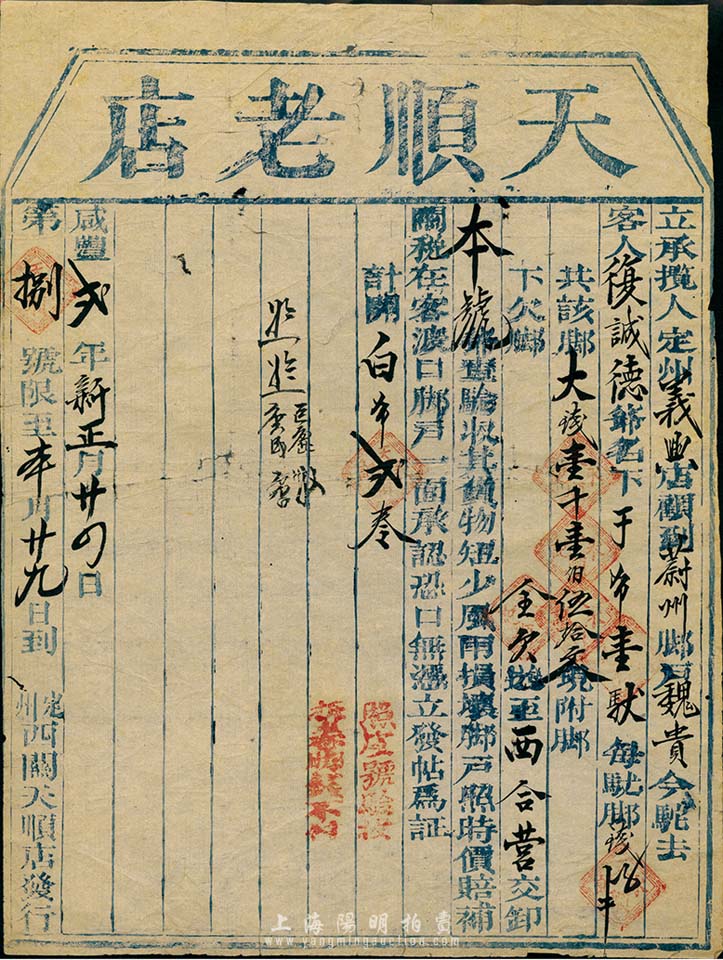 天順老店
立承攬人定州義興店顧到蔚州脚戶魏貴今駝去
客人復誠德爺名下于布壹馱每馱脚錢
共該脚大錢壹千壹伯伍拾文現附脚
下欠脚全欠 至西合營交卸
本號 驗收其貨物短少風雨損壞脚戶照時價賠補
關稅在客渡口脚戶一面承認恐口無憑立發帖爲証
計開 白布弍卷
咸豐弍年新正月廿四日
第捌號限至本月廿九日到 定州西關天順店發行
上海陽明拍賣
www.yangmingauction.com